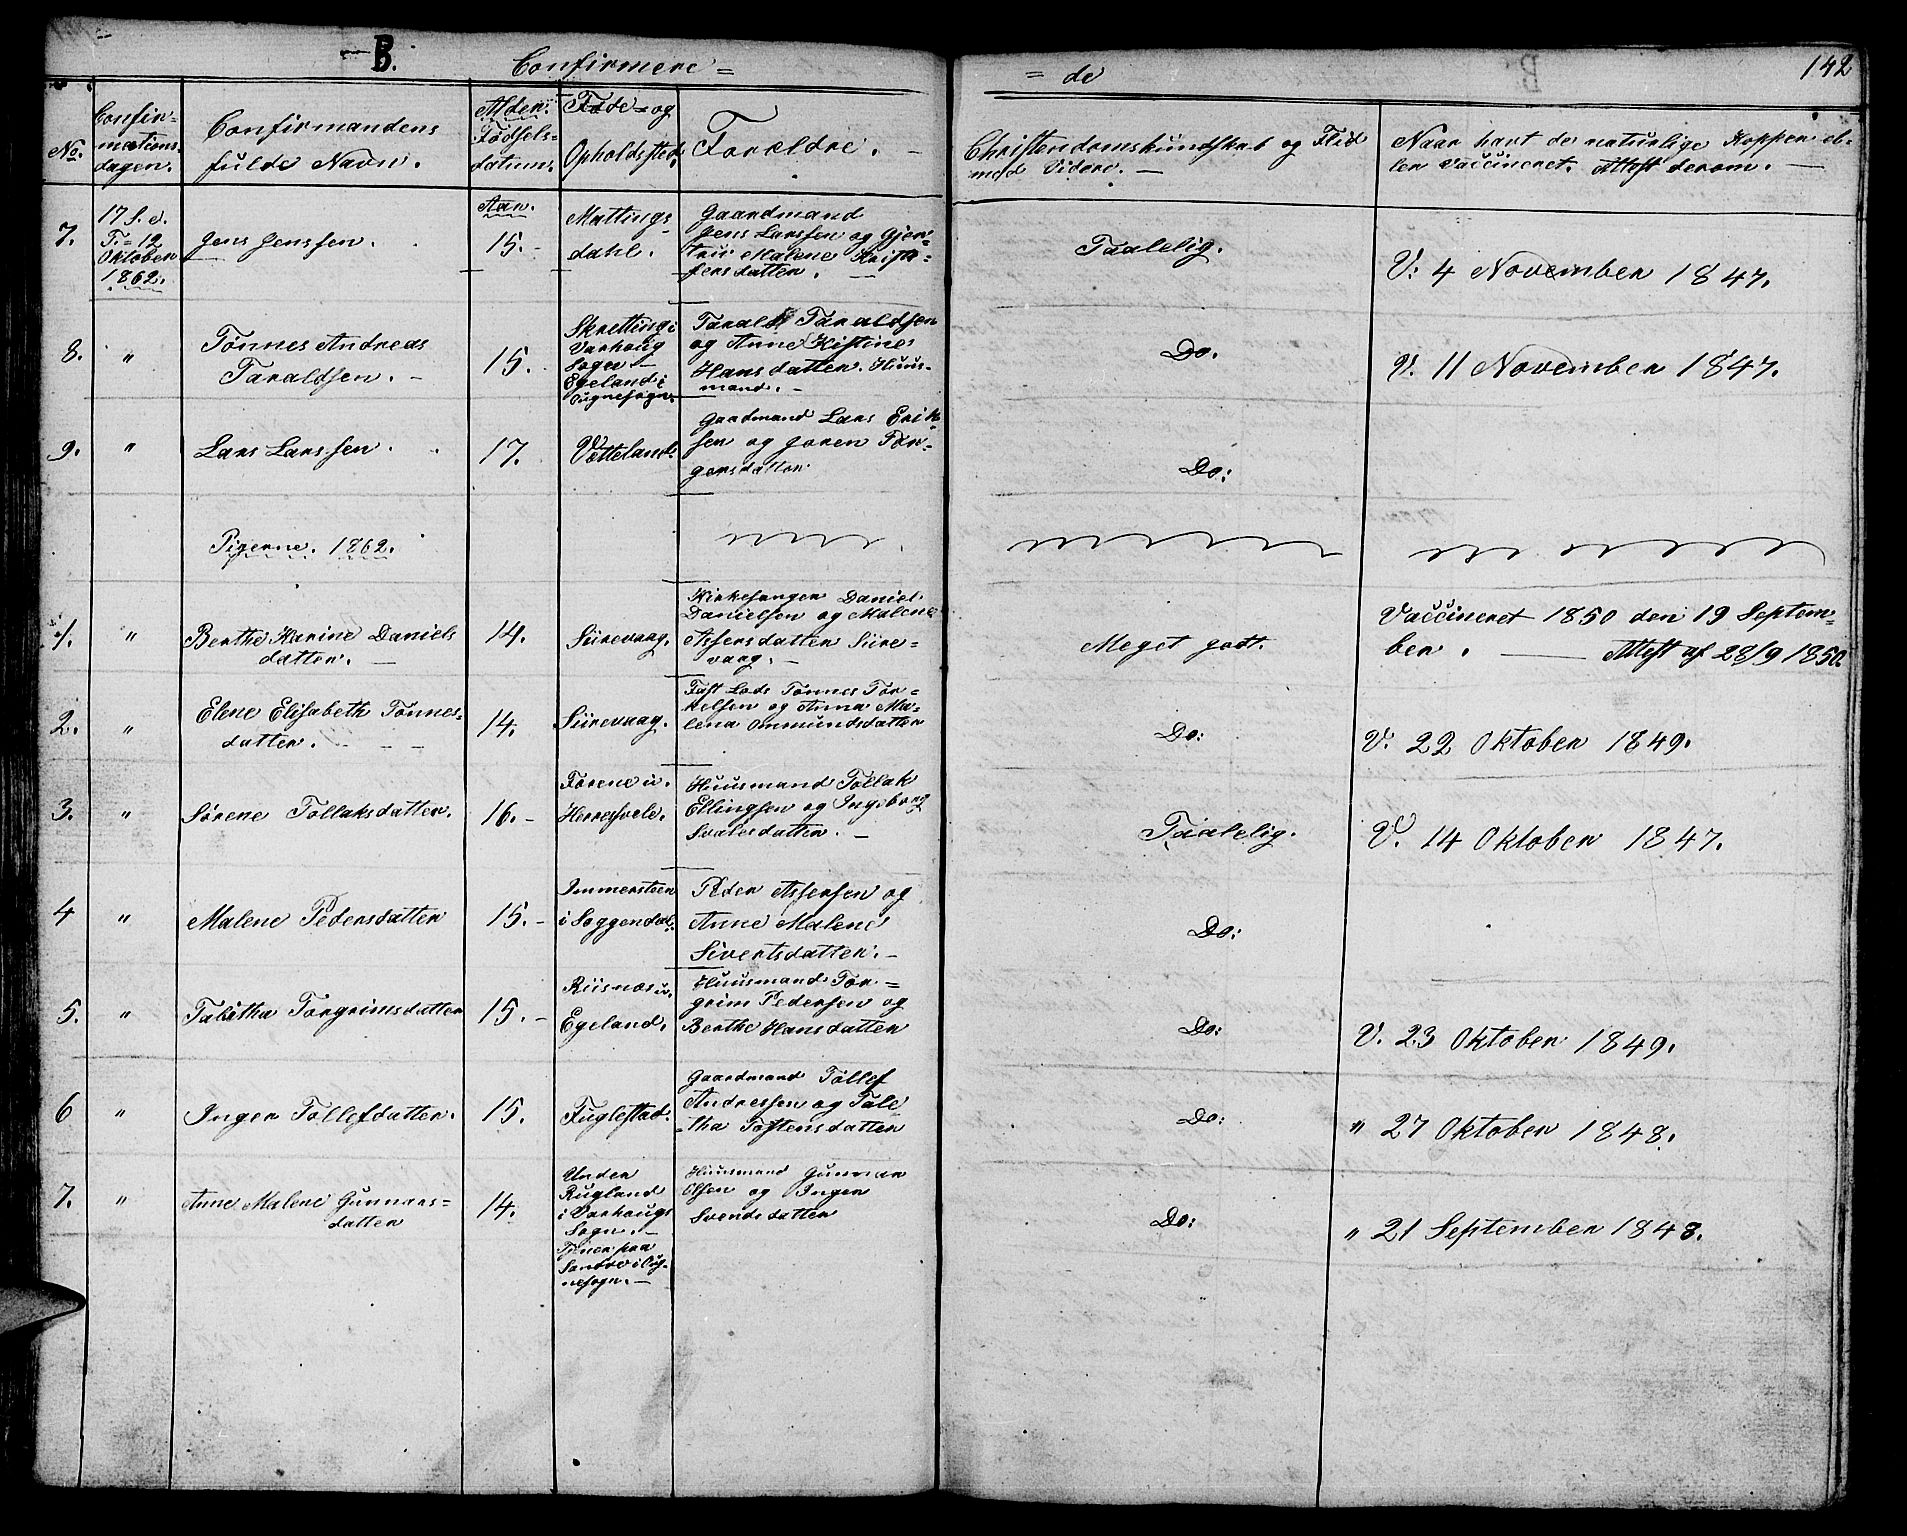 B.
Confirmere =
= de
142
No.
Confir=
mations
dagen.
Confirmandens
fulde Navn.
Alder.
Fødsels=
datum.
Føde= og
Opholdsted.
Forældre. —
Christendomskundskab og Flid
med Videre. —
Naar havt de naturlige Kopper el-
ler vaccineret. Attest derom. —
7.
17 S. e.
T= 12
Oktober
1862.
Jens Jenssen.
Aar.
15. -
Mattings
dahl.
Gaardmand
Jens Larssen og Gjer=
tru Malene Kristo=
fersdatter. —
Taalelig.
V: 4 November 1847.
8.
"
Tønnes Andreas
Taraldsen. —
15.
Skretting i
Varhoug
Sogn —
Egeland i
Ougnesogn.
Tarald Taraldsen
og Anne Kistine
Hansdatter. Huus=
mand. —
Do.
V. 11 November 1847.
9.
"
Lars Larssen.
17.
Vetteland.
Gaardmand Lars Erik
sen og Joren Tør=
gersdatter
Do:
Pigerne. 1862.
1.
"
Berthe Karine Daniels
datter. —
14.
Siirevaag.
Kirkesanger Daniel
Danielsen og Malene
Assersdatter Siire=
vaag. —
Meget godt.
Vaccineret 1850 den 19 Septem=
ber. — Attest af 28/9 1850
2.
"
Elene Elisabeth Tønnes=
datter. - - -
14.
Siirevaag.
Fast Lods Tønnes Tor=
kelsen og Anna Ma=
lena Ommundsdatter
Do:
V. 22 Oktober 1849.
3.
"
Sørene Tollaksdatter.
16. -
Førene u.
Herresvele.
Huusmand Tollak
Ellingsen og Ingeborg
Svalesdatter. —
Taalelig.
V. 14 Oktober 1847.
4
"
Malene Pedersdatter
15. -
Immersteen
i Soggendal.
Peder Assersen og
Anne Malene
Sivertsdatter. —
Do:
5.
"
Tabitha Torgrimsdatter
15. -
Riisnæs u.
Egeland.
Huusmand Tor=
grim Pedersen og
Berthe Hansdatter
Do:
V. 23 Oktober 1849.
6
"
Inger Tollefdatter.
15.
Fuglestad.
Gaardmand Tollef
Andressen og Tale=
tha Tostensdatter
Do:
" 27 Oktober 1848.
7.
"
Anne Malene Gunnars=
datter
14.
Under
Rugland
i Varhougs
Sogn. —
Tjener paa
Sandve i Oug-
nesogn. —
Huusmand Gunnar
Olsen og Inger
Svendsdatter
Do:
" 21 September 1848.